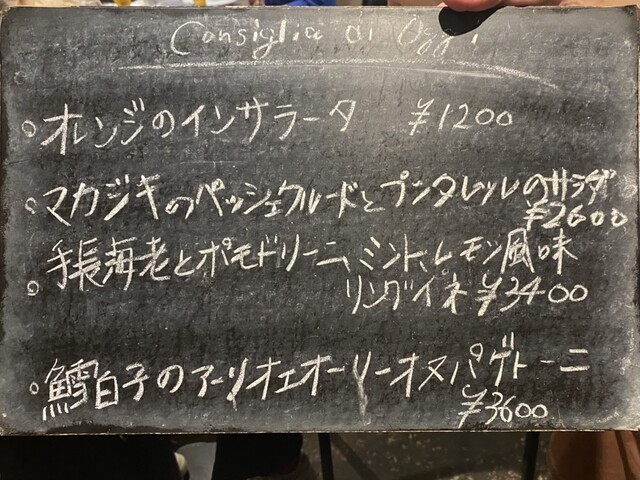 Consiglia di Oggi
オレンジのインサラータ ¥1200
マカジキのペッシェクルードとプンタレッレのサラダ
¥2600
手長海老とポモドリーニ、ミント、レモン風味
リングイネ ¥3400
鱈白子のアーリオエオーリーオスパゲトーニ
¥3600